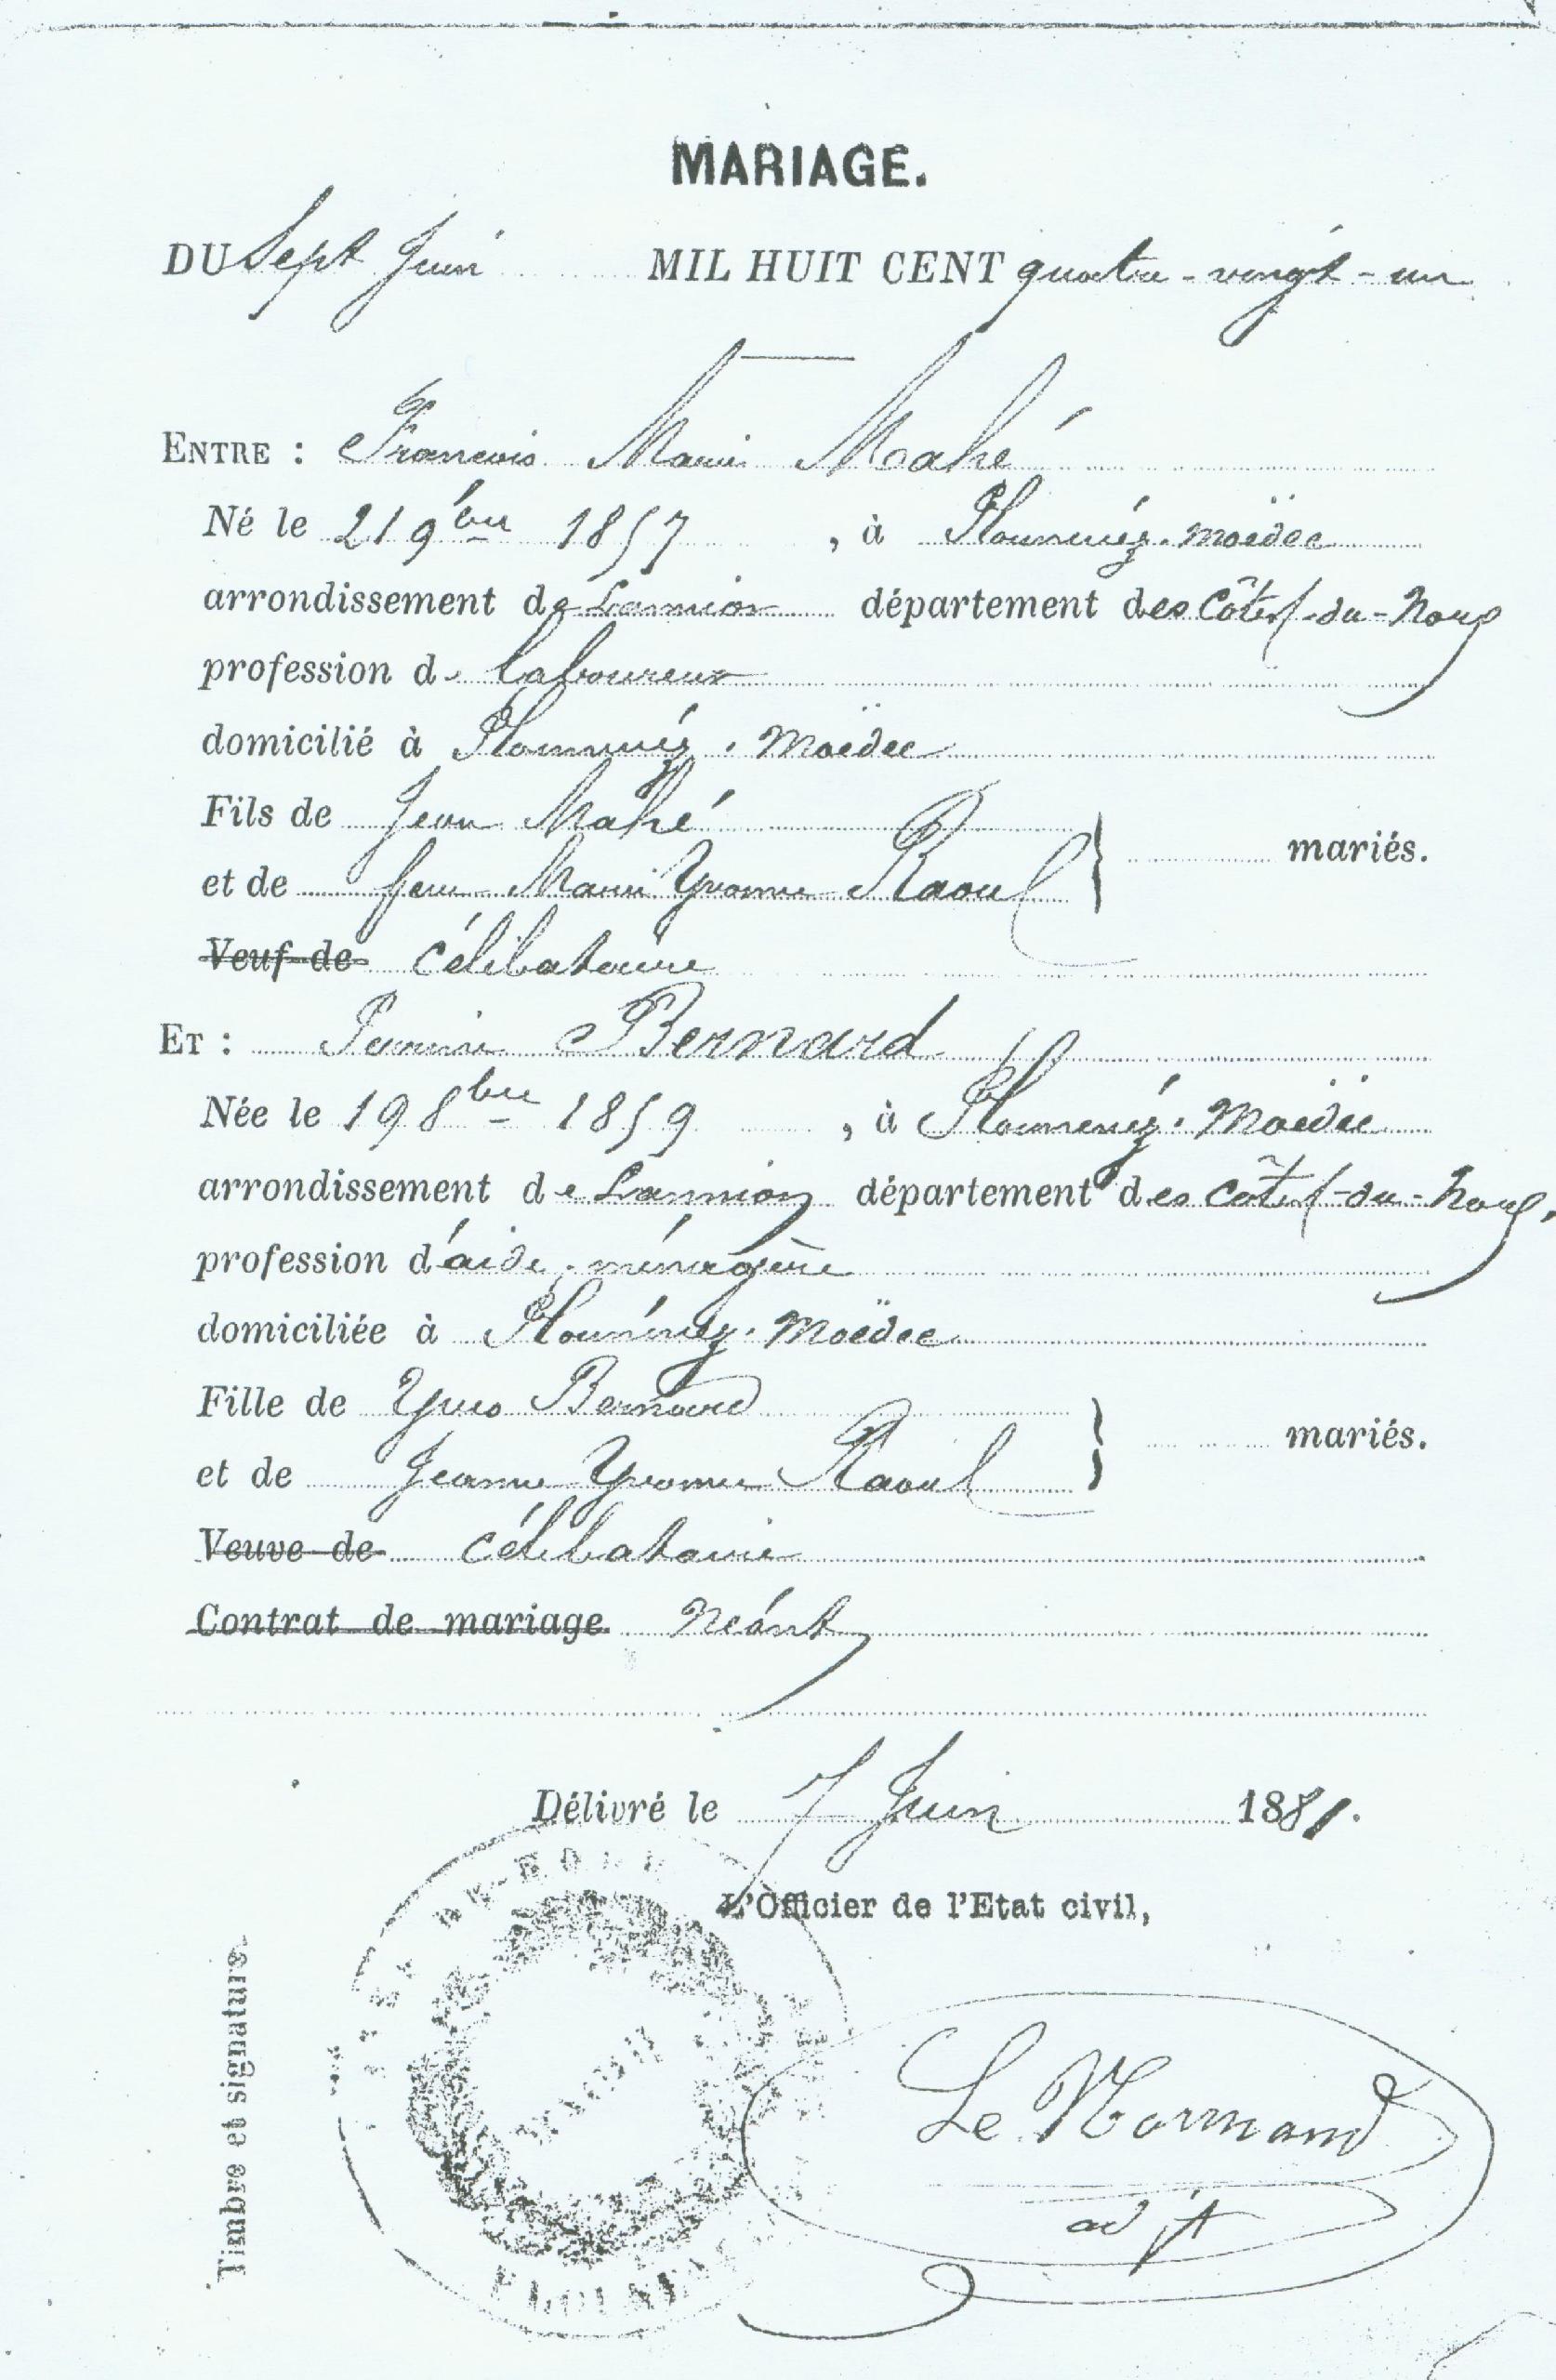 MARIAGE.
DU Sept Juin MIL HUIT CENT quatre-vingt-un
ENTRE : François Marie Mahé
Né le 21 9bre 1857, à Plounévez-Moëdec
arrondissement de Lannion département des Côtes-du-Nord
profession de laboureur
domicilié à Plounévez-Moëdec
Fils de Jean Mahé
et de feue Marie Yvonne Raoul } mariés.
Veuf de célibataire
ET : Perrine Bernard
Née le 19 8bre 1859, à Plounevez-Moëdec
arrondissement de Lannion département des Côtes-du-Nord,
profession d'aide-ménagère
domiciliée à Plounévez-Moëdec
Fille de Yves Bernard
et de Jeanne Yvonne Raoul } mariés.
Veuve de célibataire
Contrat de mariage Néant
Délivré le 7 Juin 1881.
L'Officier de l'Etat civil,
Timbre et signature.
Le Normand
adjt